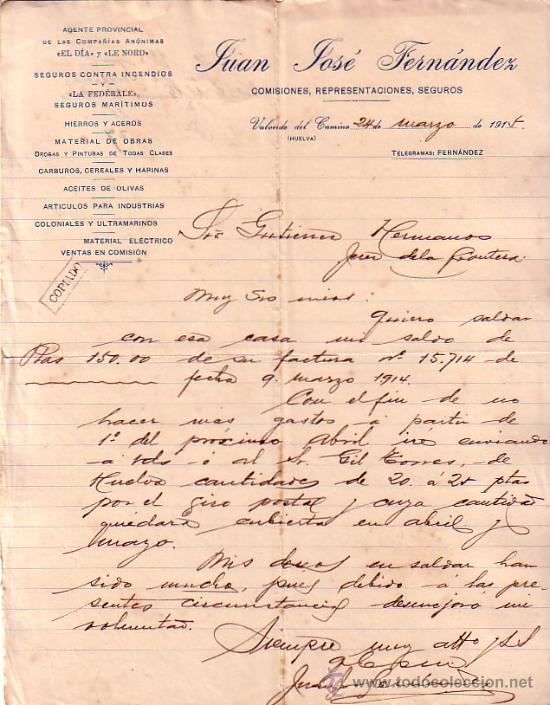 AGENTE PROVINCIAL
DE LAS COMPAÑIAS ANÓNIMAS
«EL DÍA» y «LE NORD»
SEGUROS CONTRA INCENDIOS
Y
«LA FEDÉRALE»
SEGUROS MARÍTIMOS
HIERROS Y ACEROS
MATERIAL DE OBRAS
DROGAS Y PINTURAS DE TODAS CLASES
CARBUROS, CEREALES Y HARINAS
ACEITES DE OLIVAS
ARTICULOS PARA INDUSTRIAS
COLONIALES Y ULTRAMARINOS
MATERIAL ELÉCTRICO
VENTAS EN COMISIÓN
COPIADO
Juan José Fernández
COMISIONES, REPRESENTACIONES, SEGUROS
Valverde del Camino 24 de marzo de 1915.
(HUELVA)
TELEGRAMAS: FERNÁNDEZ
Sres Gutierrez Hermanos
Jerez de la Frontera
Muy Srs mios:
Quiero saldar
con esa casa mi saldo de
Ptas 150.00 de su factura nº 15.714 de
fecha 9. marzo 1914.
Con el fin de no
hacer mas gastos á partir de
1º del próximo Abril iré enviando
á Vds ó al Sr. Gil Torres, de
Huelva cantidades de 20 á 25 ptas
por el giro postal y cuya cantidad
quedará cubierta en abril y
mayo.
Mis deseos en saldar han
sido mucho, pues debido á las pre-
sentes circunstancias desmejoro mi
voluntad.
Siempre muy atto s.s.
Juan J. Fernández
www.todocoleccion.net